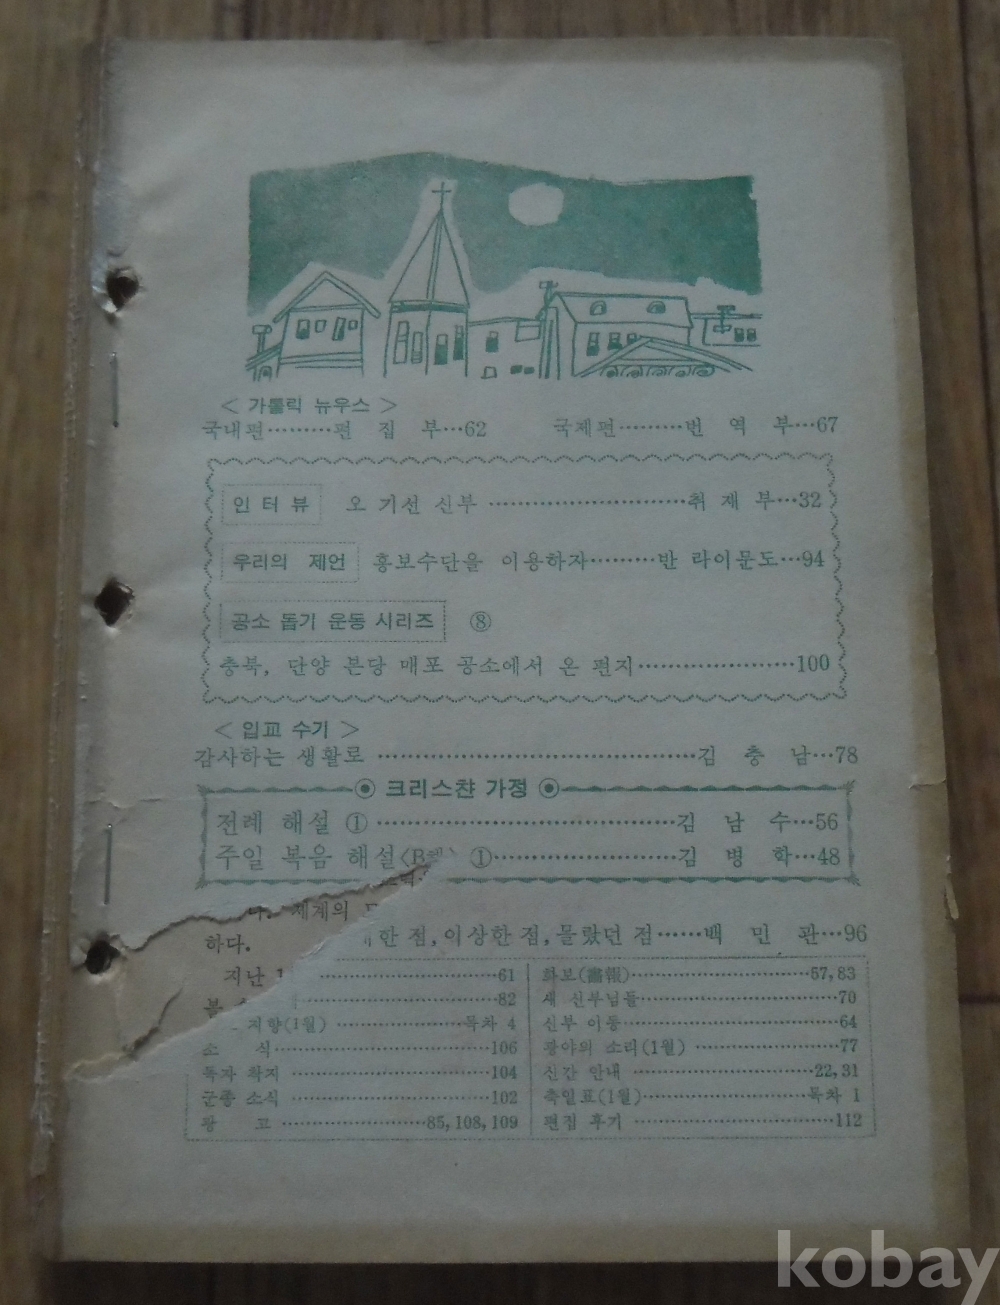 < 가톨릭 뉴우스 >
국내편………편 집 부…62 국제편………번 역 부…67
인 터 뷰 오 기선 신부 ………………………취 재 부…32
우리의 제언 홍보수단을 이용하자………반 라이문도…94
공소 돕기 운동 시리즈 ⑧
충북, 단양 본당 매포 공소에서 온 편지…………………100
< 입교 수기 >
감사하는 생활로 ……………………………………김 충 남…78
⊙ 크리스챤 가정 ⊙
전례 해설 ①……………………………………김 남 수…56
주일 복음 해설 ①……………………김 병 학…48
한 점, 이상한 점, 몰랐던 점……백 민 관…96
하다.
지난
61
82
지향(1월) ………………목차 4
소 식…………………………106
독자 학지 ………………………104
군종 소식 ………………………102
광 고 ………………85, 108, 109
화보(畵報)……………………57, 83
새 신부님들………………………70
신부 이동…………………………64
광야의 소리(1월) ………………77
신간 안내 ……………………22, 31
축일표(1월)…………………목차 1
편집 후기 ………………………112
kobay